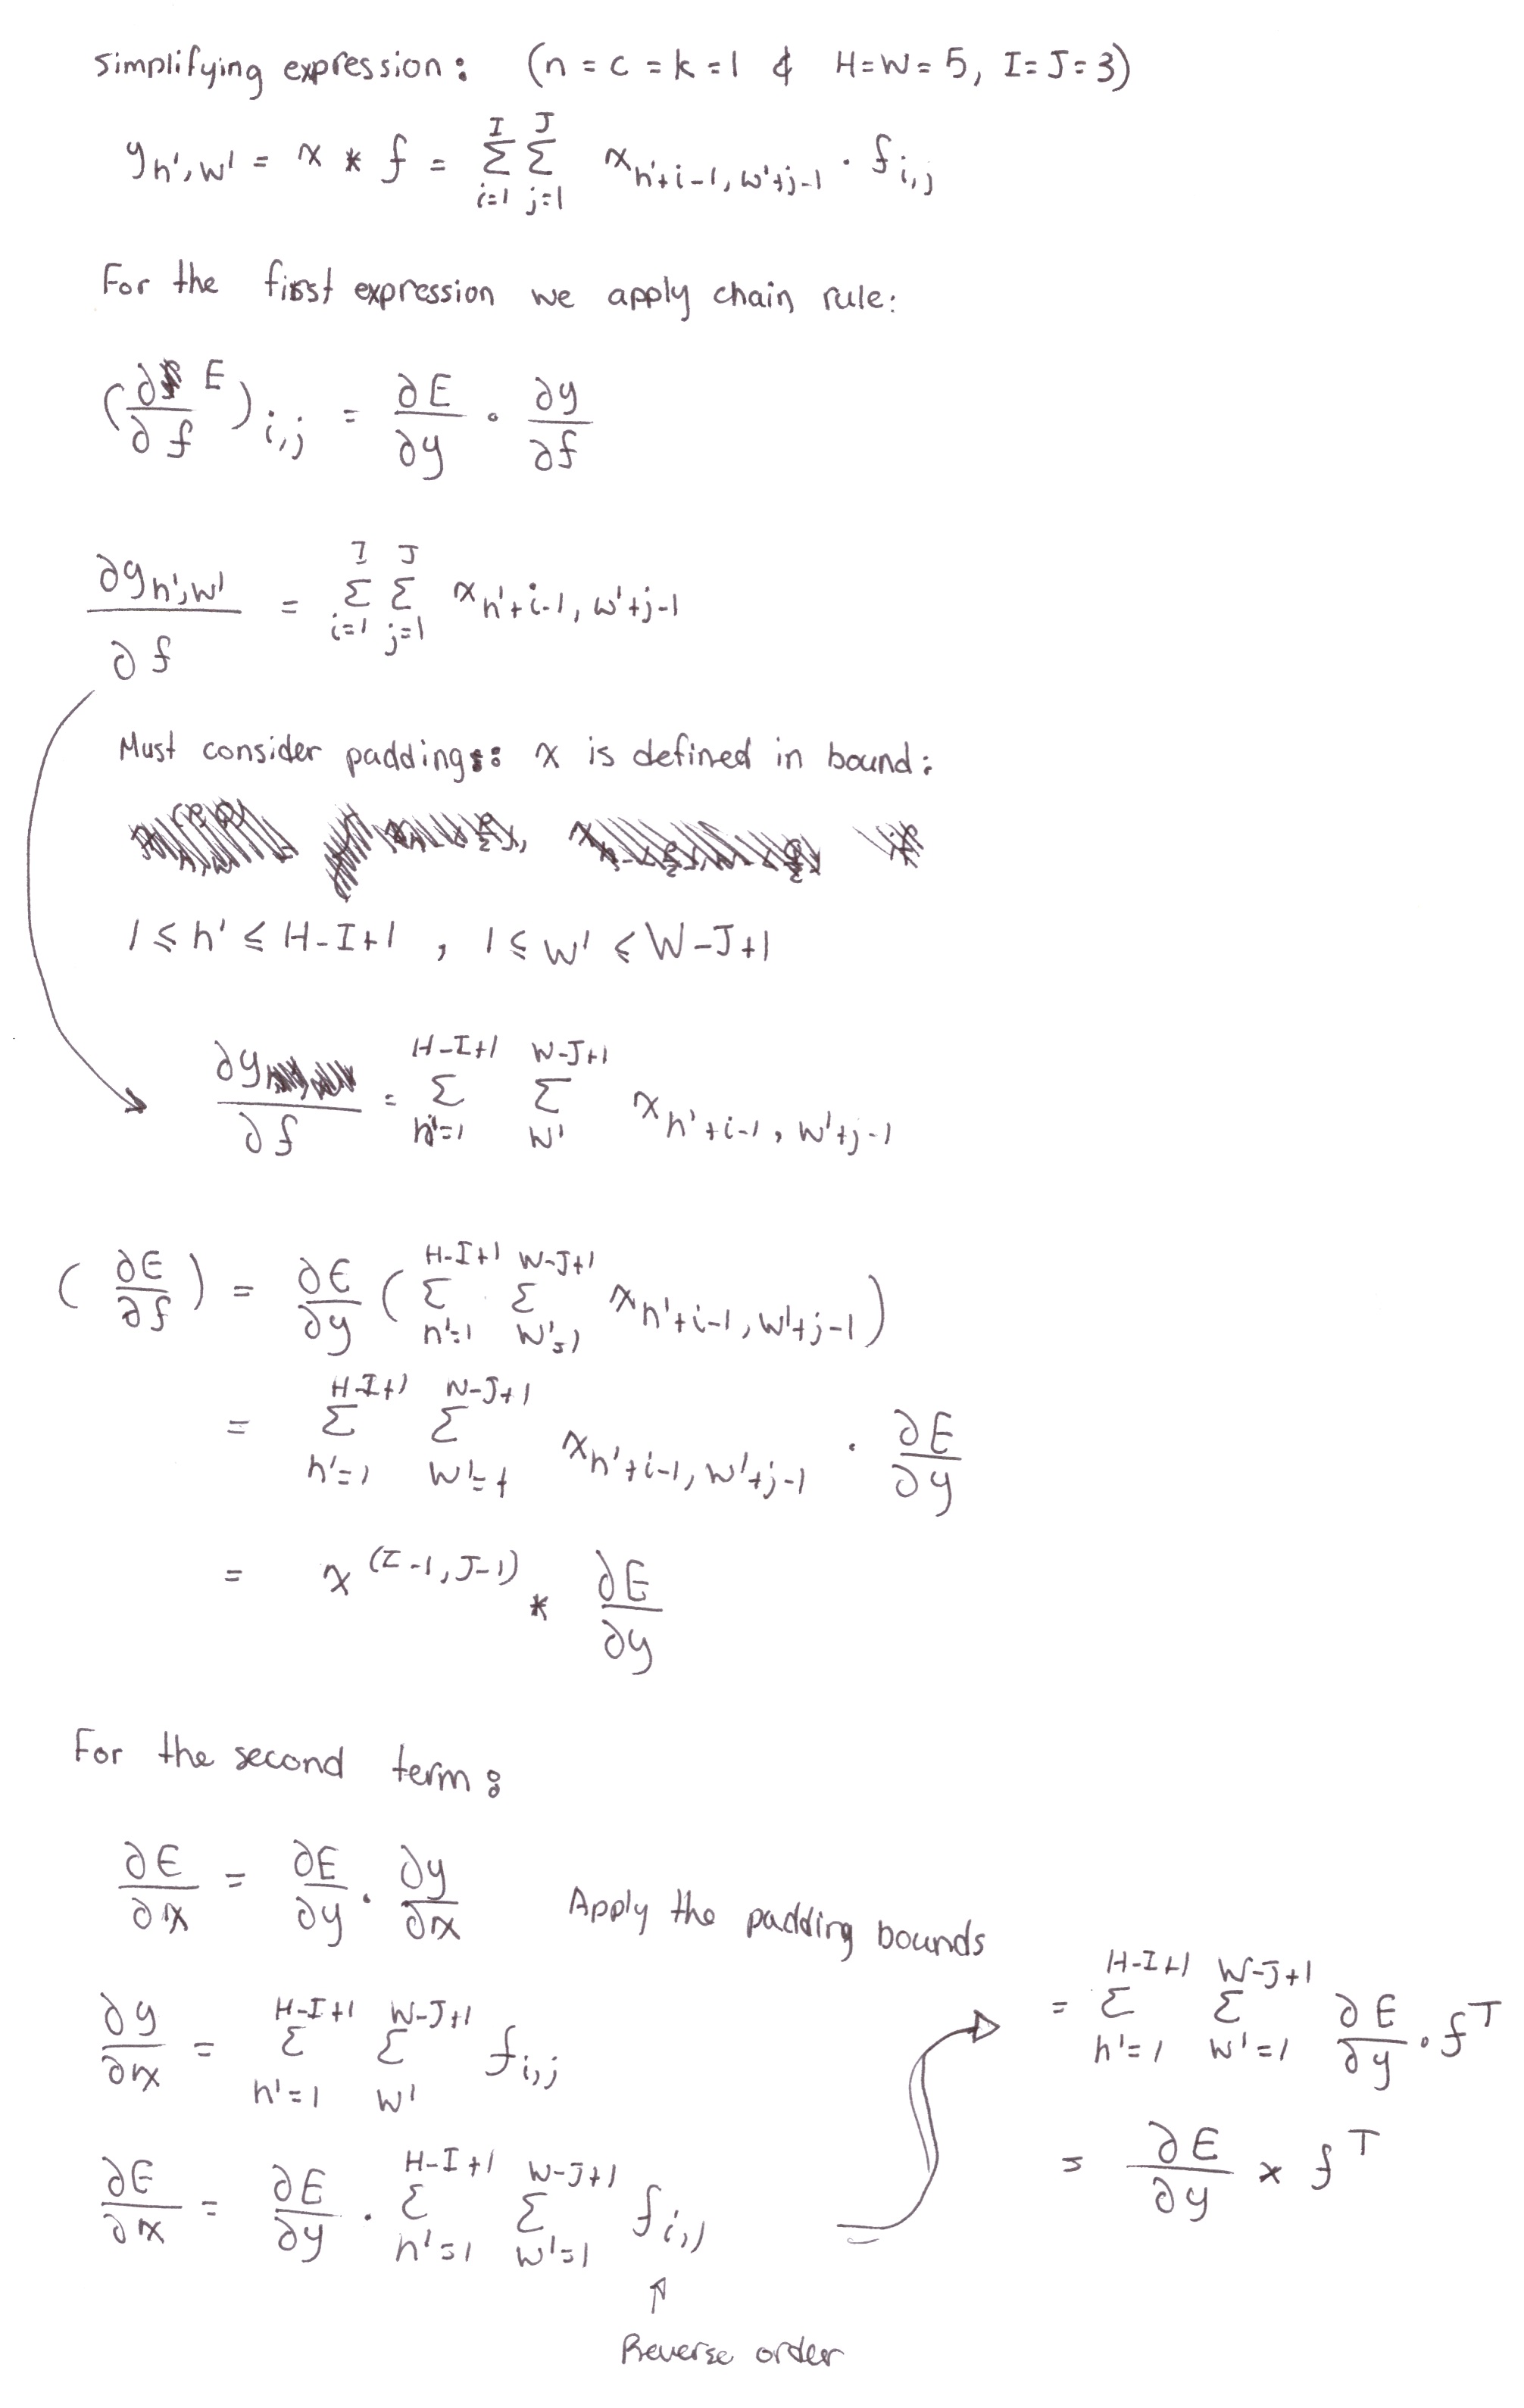 simplifying expression: (n = c = k = 1 & H=W=5, I=J=3)
y_{h',w'} = x * f = Σ_{i=1}^{I} Σ_{j=1}^{J} x_{h'+i-1, w'+j-1} · f_{i,j}
For the first expression we apply chain rule:
(∂E/∂f)_{i,j} = ∂E/∂y · ∂y/∂f
∂y_{h',w'}/∂f = Σ_{i=1}^{I} Σ_{j=1}^{J} x_{h'+i-1, w'+j-1}
Must consider padding: x is defined in bound:
1 ≤ h' ≤ H-I+1 , 1 ≤ w' ≤ W-J+1
∂y/∂f = Σ_{h'=1}^{H-I+1} Σ_{w'}^{W-J+1} x_{h'+i-1, w'+j-1}
(∂E/∂f) = ∂E/∂y (Σ_{h'=1}^{H-I+1} Σ_{w'=1}^{W-J+1} x_{h'+i-1, w'+j-1})
= Σ_{h'=1}^{H-I+1} Σ_{w'=1}^{W-J+1} x_{h'+i-1, w'+j-1} · ∂E/∂y
= x^{(I-1, J-1)} * ∂E/∂y
For the second term:
∂E/∂x = ∂E/∂y · ∂y/∂x Apply the padding bounds
∂y/∂x = Σ_{h'=1}^{H-I+1} Σ_{w'}^{W-J+1} f_{i,j}
∂E/∂x = ∂E/∂y · Σ_{h'=1}^{H-I+1} Σ_{w'=1}^{W-J+1} f_{i,j}
Reverse order
= Σ_{h'=1}^{H-I+1} Σ_{w'=1}^{W-J+1} ∂E/∂y · f^T
= ∂E/∂y × f^T